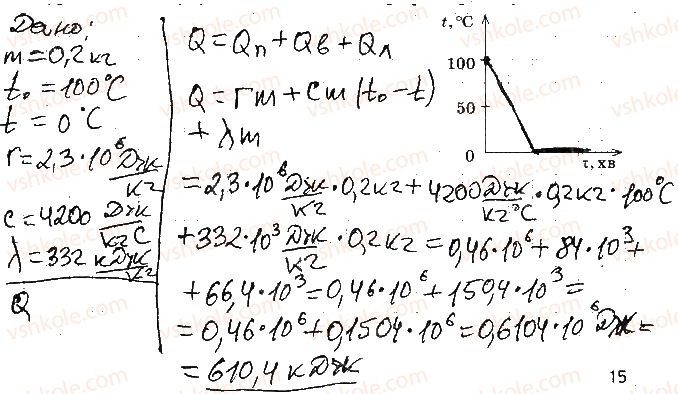 Дано:
m=0,2 кг
t₀=100°C
t=0°C
r=2,3·10⁶ Дж/кг
c=4200 Дж/кг°C
λ=332 кДж/кг
Q
Q=Qп+Qв+Qл
Q=rm+cm(t₀-t)
+λm
=2,3·10⁶ Дж/кг·0,2кг+4200 Дж/кг°C·0,2кг·100°C
+332·10³ Дж/кг·0,2кг=0,46·10⁶+84·10³+
+66,4·10³=0,46·10⁶+150,4·10³=
=0,46·10⁶+0,1504·10⁶=0,6104·10⁶Дж=
=610,4 кДж
t,°C
100
50
0
τ, хв
15
vshkole.com